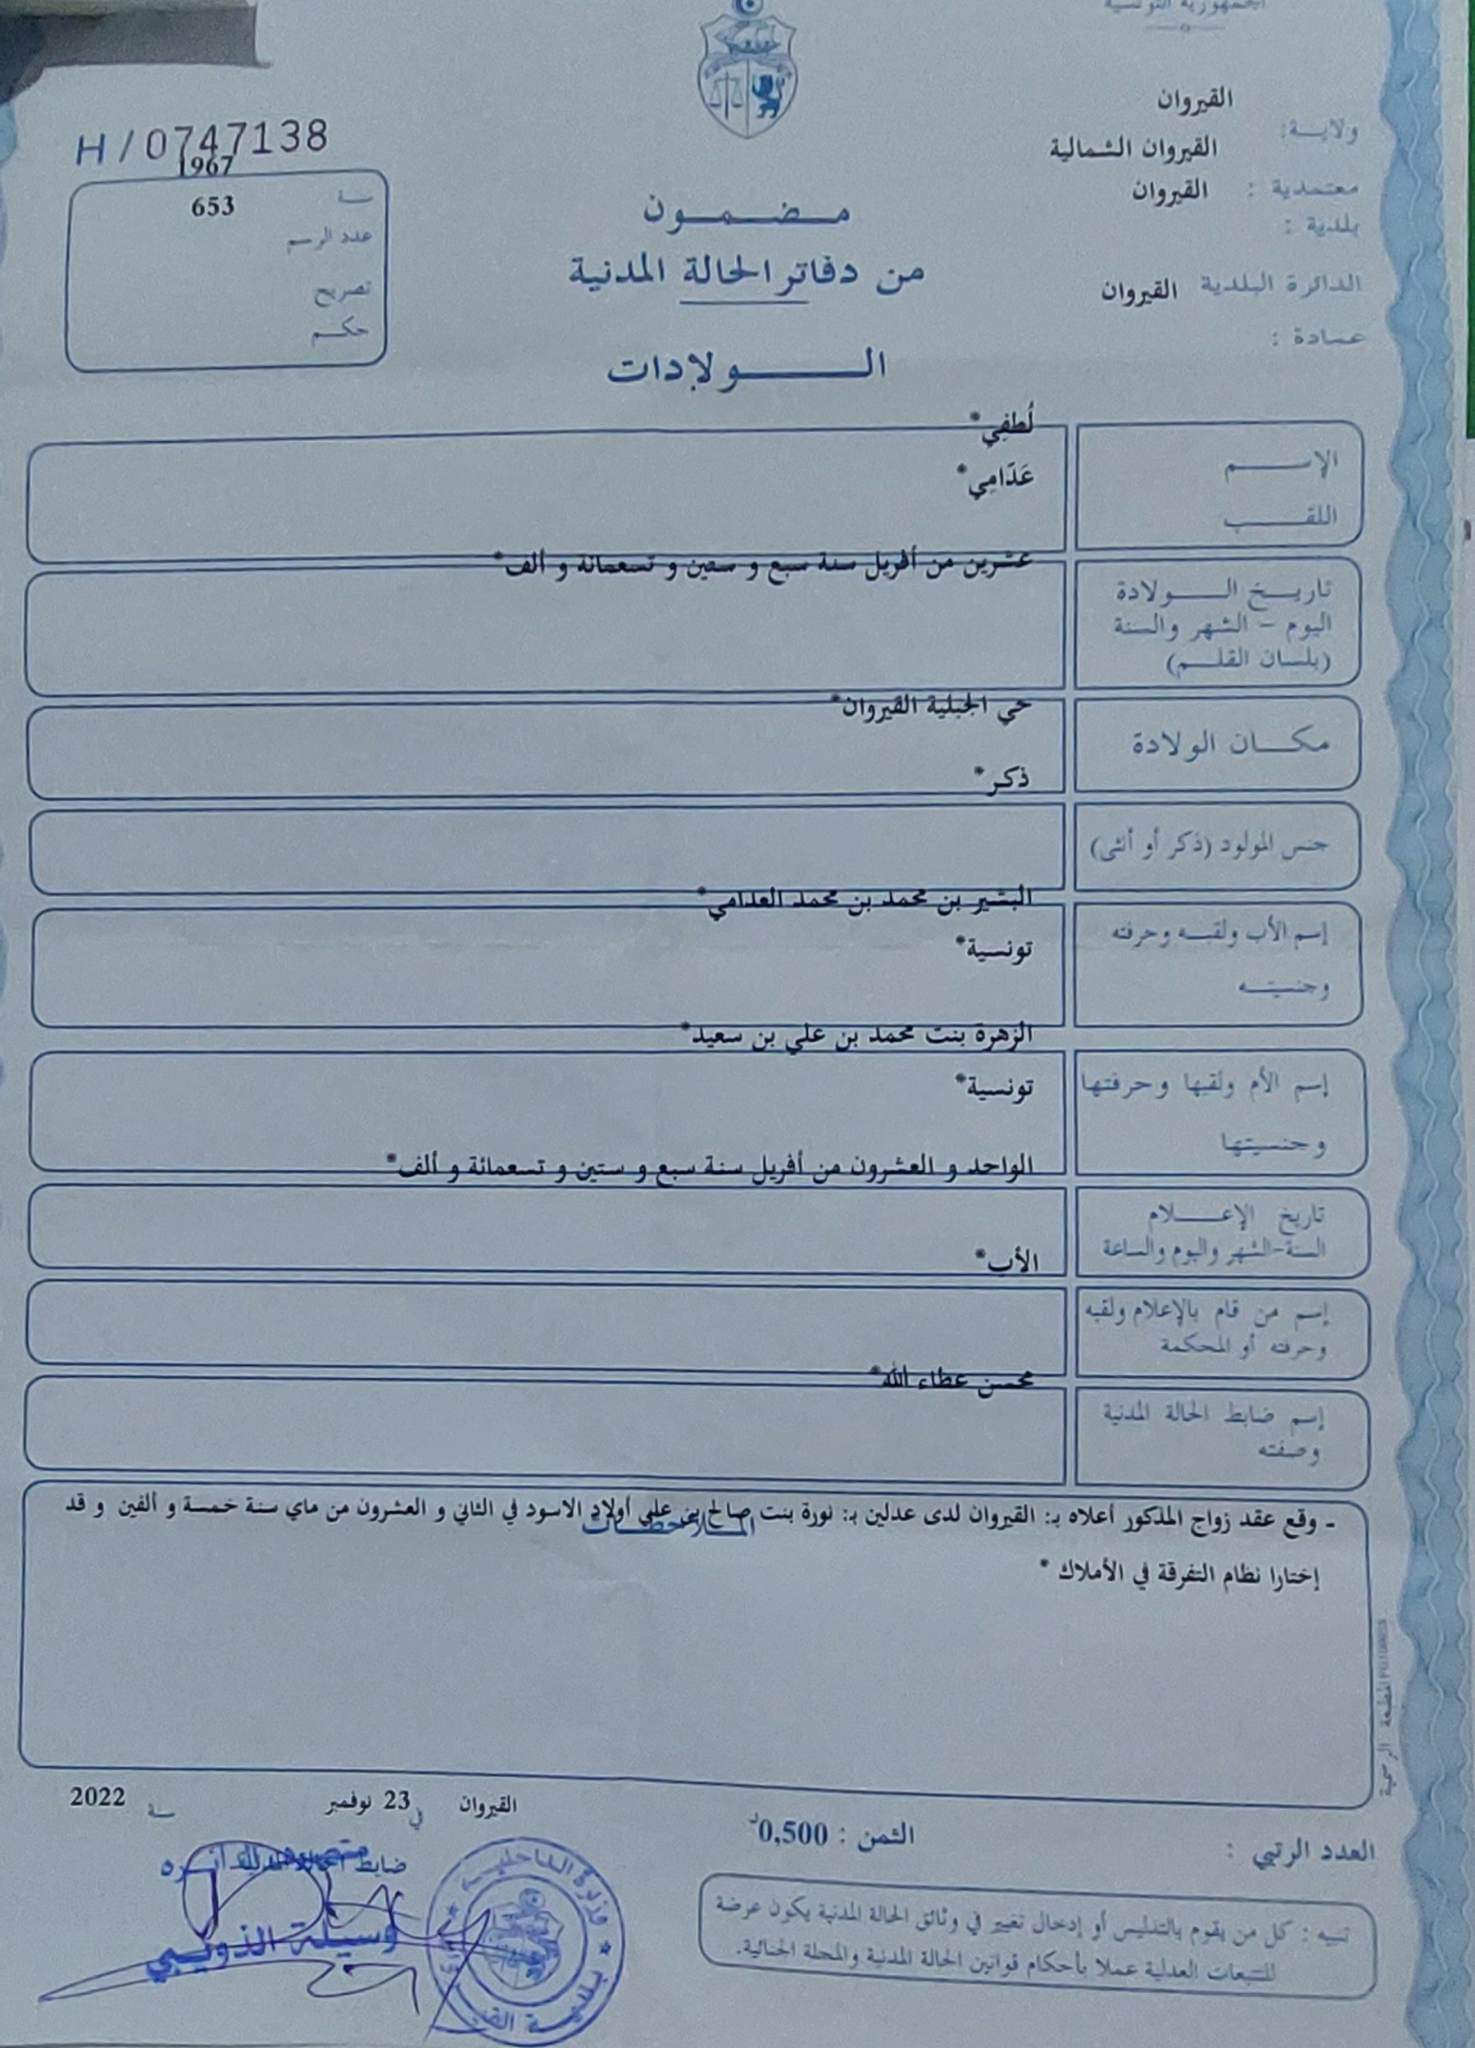 الجمهورية التونسية
القيروان
ولايــة:
القيروان الشمالية
معتمدية :
القيروان
بلدية :
الدائرة البلدية القيروان
عمادة :
H/0747138
1967
سنة
653
عدد الرسم
تصريح
حكم
مضمون
من دفاتر الحالة المدنية
الولادات
لُطفِي*
الإسم
عَدَامِي*
اللقب
عشرين من أفريل سنة سبع و ستين و تسعمائة و ألف*
تاريخ الولادة
اليوم - الشهر والسنة
(بلسان القلم)
حي الجبلية القيروان*
مكان الولادة
ذكر*
جنس المولود (ذكر أو أنثى)
البشير بن محمد بن محمد العدامي*
إسم الأب ولقبه وحرفته
تونسية*
وجنسيته
الزهرة بنت محمد بن علي بن سعيد*
إسم الأم ولقبها وحرفتها
تونسية*
وجنسيتها
الواحد و العشرون من أفريل سنة سبع و ستين و تسعمائة و ألف*
تاريخ الإعلام
السنة-الشهر واليوم والساعة
الأب*
إسم من قام بالإعلام ولقبه
وحرفته أو المحكمة
محسن عطاء الله*
إسم ضابط الحالة المدنية
وصفته
الملاحظات
- وقع عقد زواج المذكور أعلاه بـ: القيروان لدى عدلين بـ: نورة بنت صالح بن علي أولاد الاسود في الثاني و العشرون من ماي سنة خمسة و ألفين و قد
إختارا نظام التفرقة في الأملاك *
المطبعة الرسمية
القيروان في 23 نوفمبر سنة 2022
العدد الرتبي :
الثمن : 0,500د
ضابط الحالة المدنية
متصرف الدائرة
وسيلة الذويبي
وزارة الداخلية
بلدية القيروان
تنبيه : كل من يقوم بالتدليس أو إدخال تغيير في وثائق الحالة المدنية يكون عرضة
للتتبعات العدلية عملا بأحكام قوانين الحالة المدنية والمجلة الجنائية.